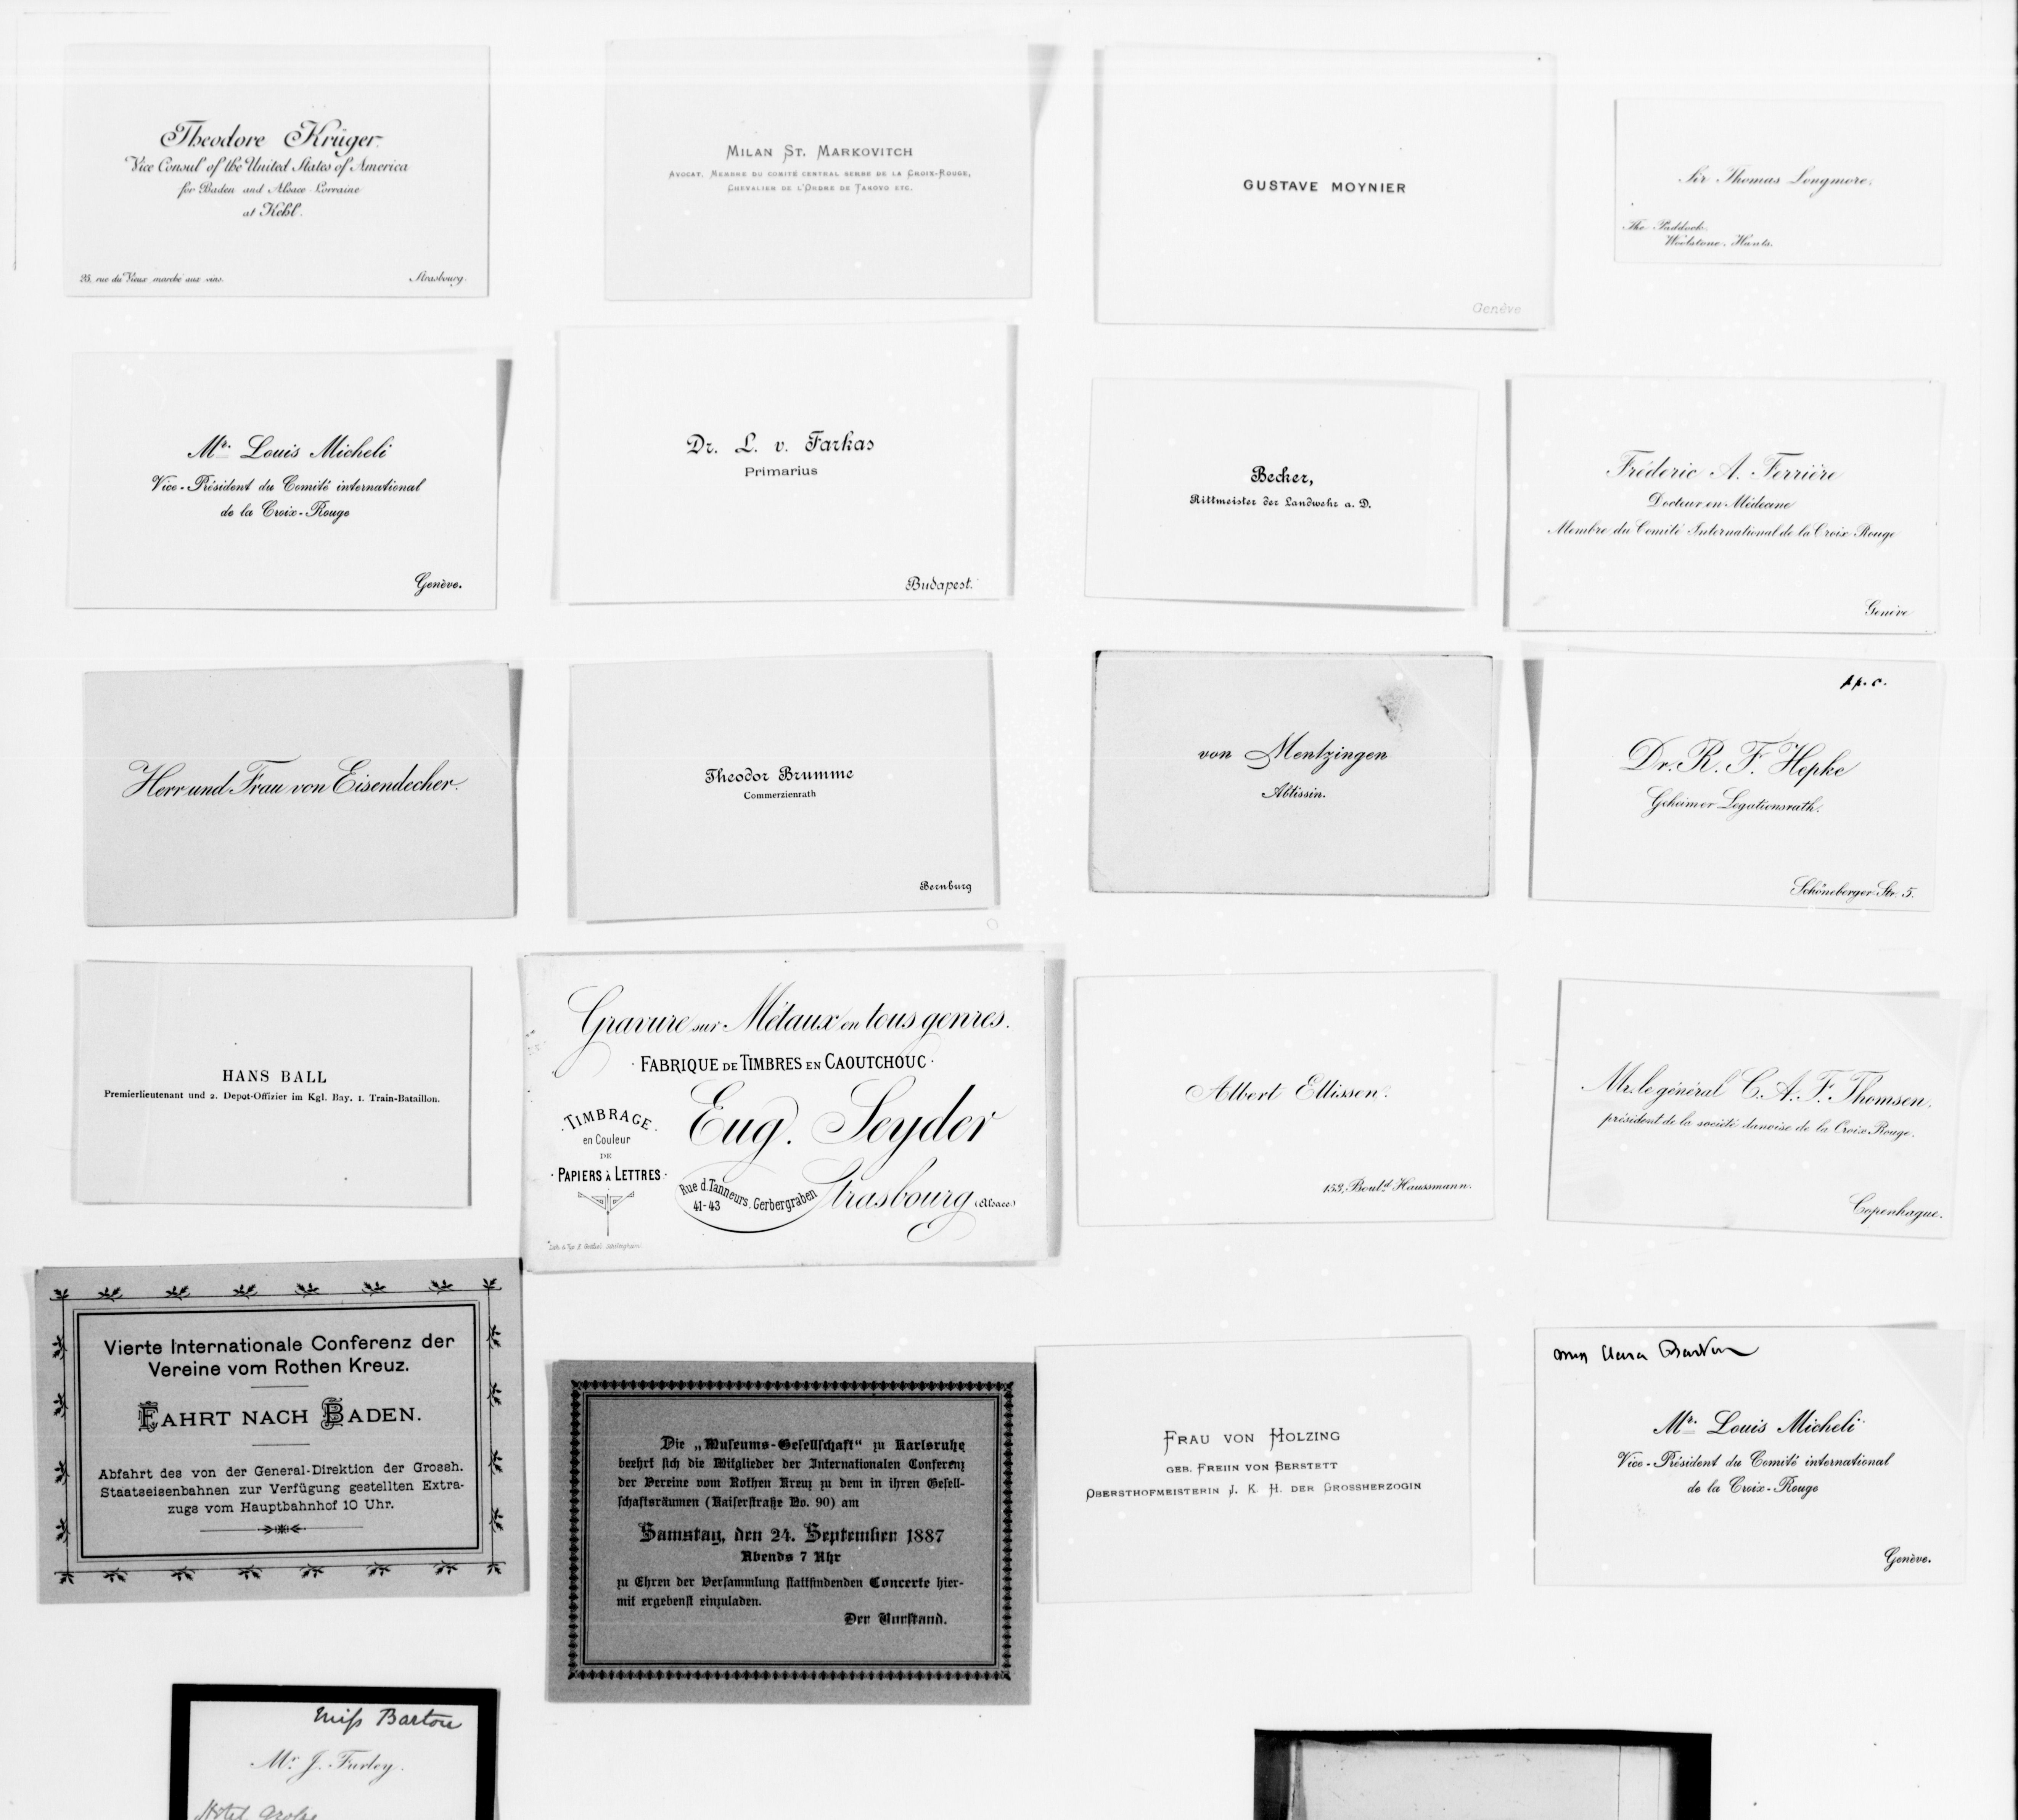 Theodore Krüger
Vice Consul of the United States of America
for Baden and Alsace-Lorraine
at Kehl.
25, rue du Vieux marché aux vins.
Strasbourg.
MILAN ST. MARKOVITCH
AVOCAT, MEMBRE DU COMITÉ CENTRAL SERBE DE LA CROIX-ROUGE,
CHEVALIER DE L'ORDRE DE TAKOVO ETC.
GUSTAVE MOYNIER
Genève
Sir Thomas Longmore.
The Paddock.
Woolstone, Hants.
Mr. Louis Micheli
Vice-Président du Comité international
de la Croix-Rouge
Genève.
Dr. L. v. Farkas
Primarius
Budapest.
Becker,
Rittmeister der Landwehr a. D.
Fréderic A. Ferrière
Docteur en Médecine
Membre du Comité International de la Croix Rouge
Genève
Herr und Frau von Eisendecher.
Theodor Brumme
Commerzienrath
Bernburg
von Mentzingen
Abtissin.
p.p.c.
Dr. R. F. Hepke
Geheimer Legationsrath.
Schöneberger Str. 5.
HANS BALL
Premierlieutenant und 2. Depot-Offizier im Kgl. Bay. 1. Train-Bataillon.
Gravure sur Métaux en tous genres.
· FABRIQUE DE TIMBRES EN CAOUTCHOUC ·
Eug. Seyder
· TIMBRAGE ·
en Couleur
DE
· PAPIERS à LETTRES ·
Rue d. Tanneurs, Gerbergraben
41-43
Strasbourg (Alsace)
Albert Ellissen.
153, Boul.d Haussmann.
Mr. le général C. A. F. Thomsen.
président de la société danoise de la Croix Rouge.
Copenhague.
Vierte Internationale Conferenz der
Vereine vom Rothen Kreuz.
FAHRT NACH BADEN.
Abfahrt des von der General-Direktion der Grossh.
Staatseisenbahnen zur Verfügung gestellten Extra-
zugs vom Hauptbahnhof 10 Uhr.
Die „Museums-Gesellschaft“ zu Karlsruhe
beehrt sich die Mitglieder der Internationalen Conferenz
der Vereine vom Rothen Kreuz zu dem in ihren Gesell-
schaftsräumen (Kaiserstraße No. 90) am
Samstag, den 24. September 1887
Abends 7 Uhr
zu Ehren der Versammlung stattfindenden Concerte hier-
mit ergebenst einzuladen.
Der Vorstand.
FRAU VON HOLZING
GEB. FREIIN VON BERSTETT
OBERSTHOFMEISTERIN J. K. H. DER GROSSHERZOGIN
Miss Clara Barton
Mr. Louis Micheli
Vice-Président du Comité international
de la Croix-Rouge
Genève.
Miss Barton
Mr. J. Furley.
Hotel